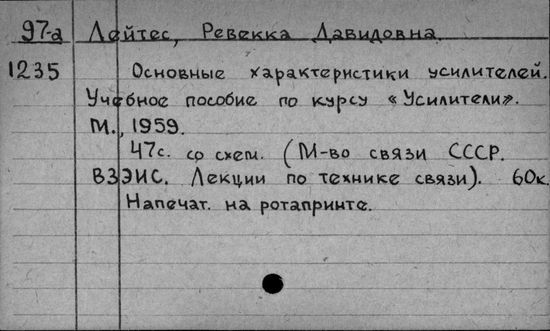 97-а Лейтес, Ревекка Давидовна
1235 Основные характеристики усилителей.
Учебное пособие по курсу «Усилители».
М., 1959.
47с. со схем. (М-во связи СССР.
ВЗЭИС. Лекции по технике связи). 60к.
Напечат. на ротапринте.